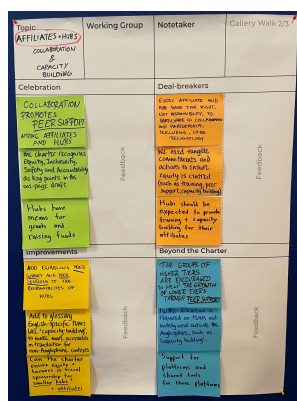 Topic
AFFILIATES + HUBS
COLLABORATION
&
CAPACITY
BUILDING
Working Group
Notetaker
Gallery Walk 2/3
Celebration
COLLABORATION
PROMOTES
PEER SUPPORT
AMONG AFFILIATES
AND HUBS
The charter recognises
Equity, Inclusivity,
Safety and Accountability
as key points in the
one-page draft
Hubs have
means for
grants and
raising funds
Feedback
Deal-breakers
EVERY AFFILIATE AND
HUB HAVE THE RIGHT,
NOT RESPONSIBILITY, TO
PARTICIPATE IN COLLABORATION
AND PARTNERSHIPS,
INCLUDING
TECHNOLOGY
We need tangible
commitments and
actions to ensure
equity is centred
(such as training, peer
support, capacity building)
Hubs should be
expected to provide
training + capacity
building for their
affiliates
Feedback
Improvements
ADD PEER
SUPPORT AND PEER
TO THE
RESPONSIBILITIES OF
HUBS
Add to glossary
English-specific terms
like "capacity building",
to make word accessible
in translation for
non-Anglophone contexts
Can the charter
ensure equity +
fairness in
sponsorship for
smaller hubs
+ affiliates
Feedback
Beyond the Charter
THE GROUPS OF
HIGHER TIERS
ARE ENCOURAGED
TO HELP THE GROWTH
OF LOWER TIERS
THROUGH PEER SUPPORT
Further discussion is
required on terms not
widely used outside the
Anglosphere, such as
"capacity building"
Support for
platforms
and shared
tools
for those platforms
Feedback